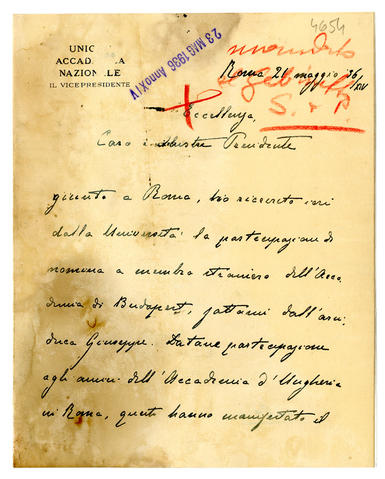 4654
UNIC
ACCADEMIA
NAZIONALE
IL VICEPRESIDENTE
23 MAG 1936 Anno XIV
Roma 21 maggio 36,
XIV
S. +
Eccellenza,
Caro illustre Presidente
giunto a Roma, ho ricevuto ieri
dalla Università la partecipazione di
nomina a membro straniero dell'Acca
demia di Budapest, fattami dall'arci
duca Giuseppe. Datane partecipazione
agli amici dell'Accademia d'Ungheria
in Roma, questi hanno manifestato il